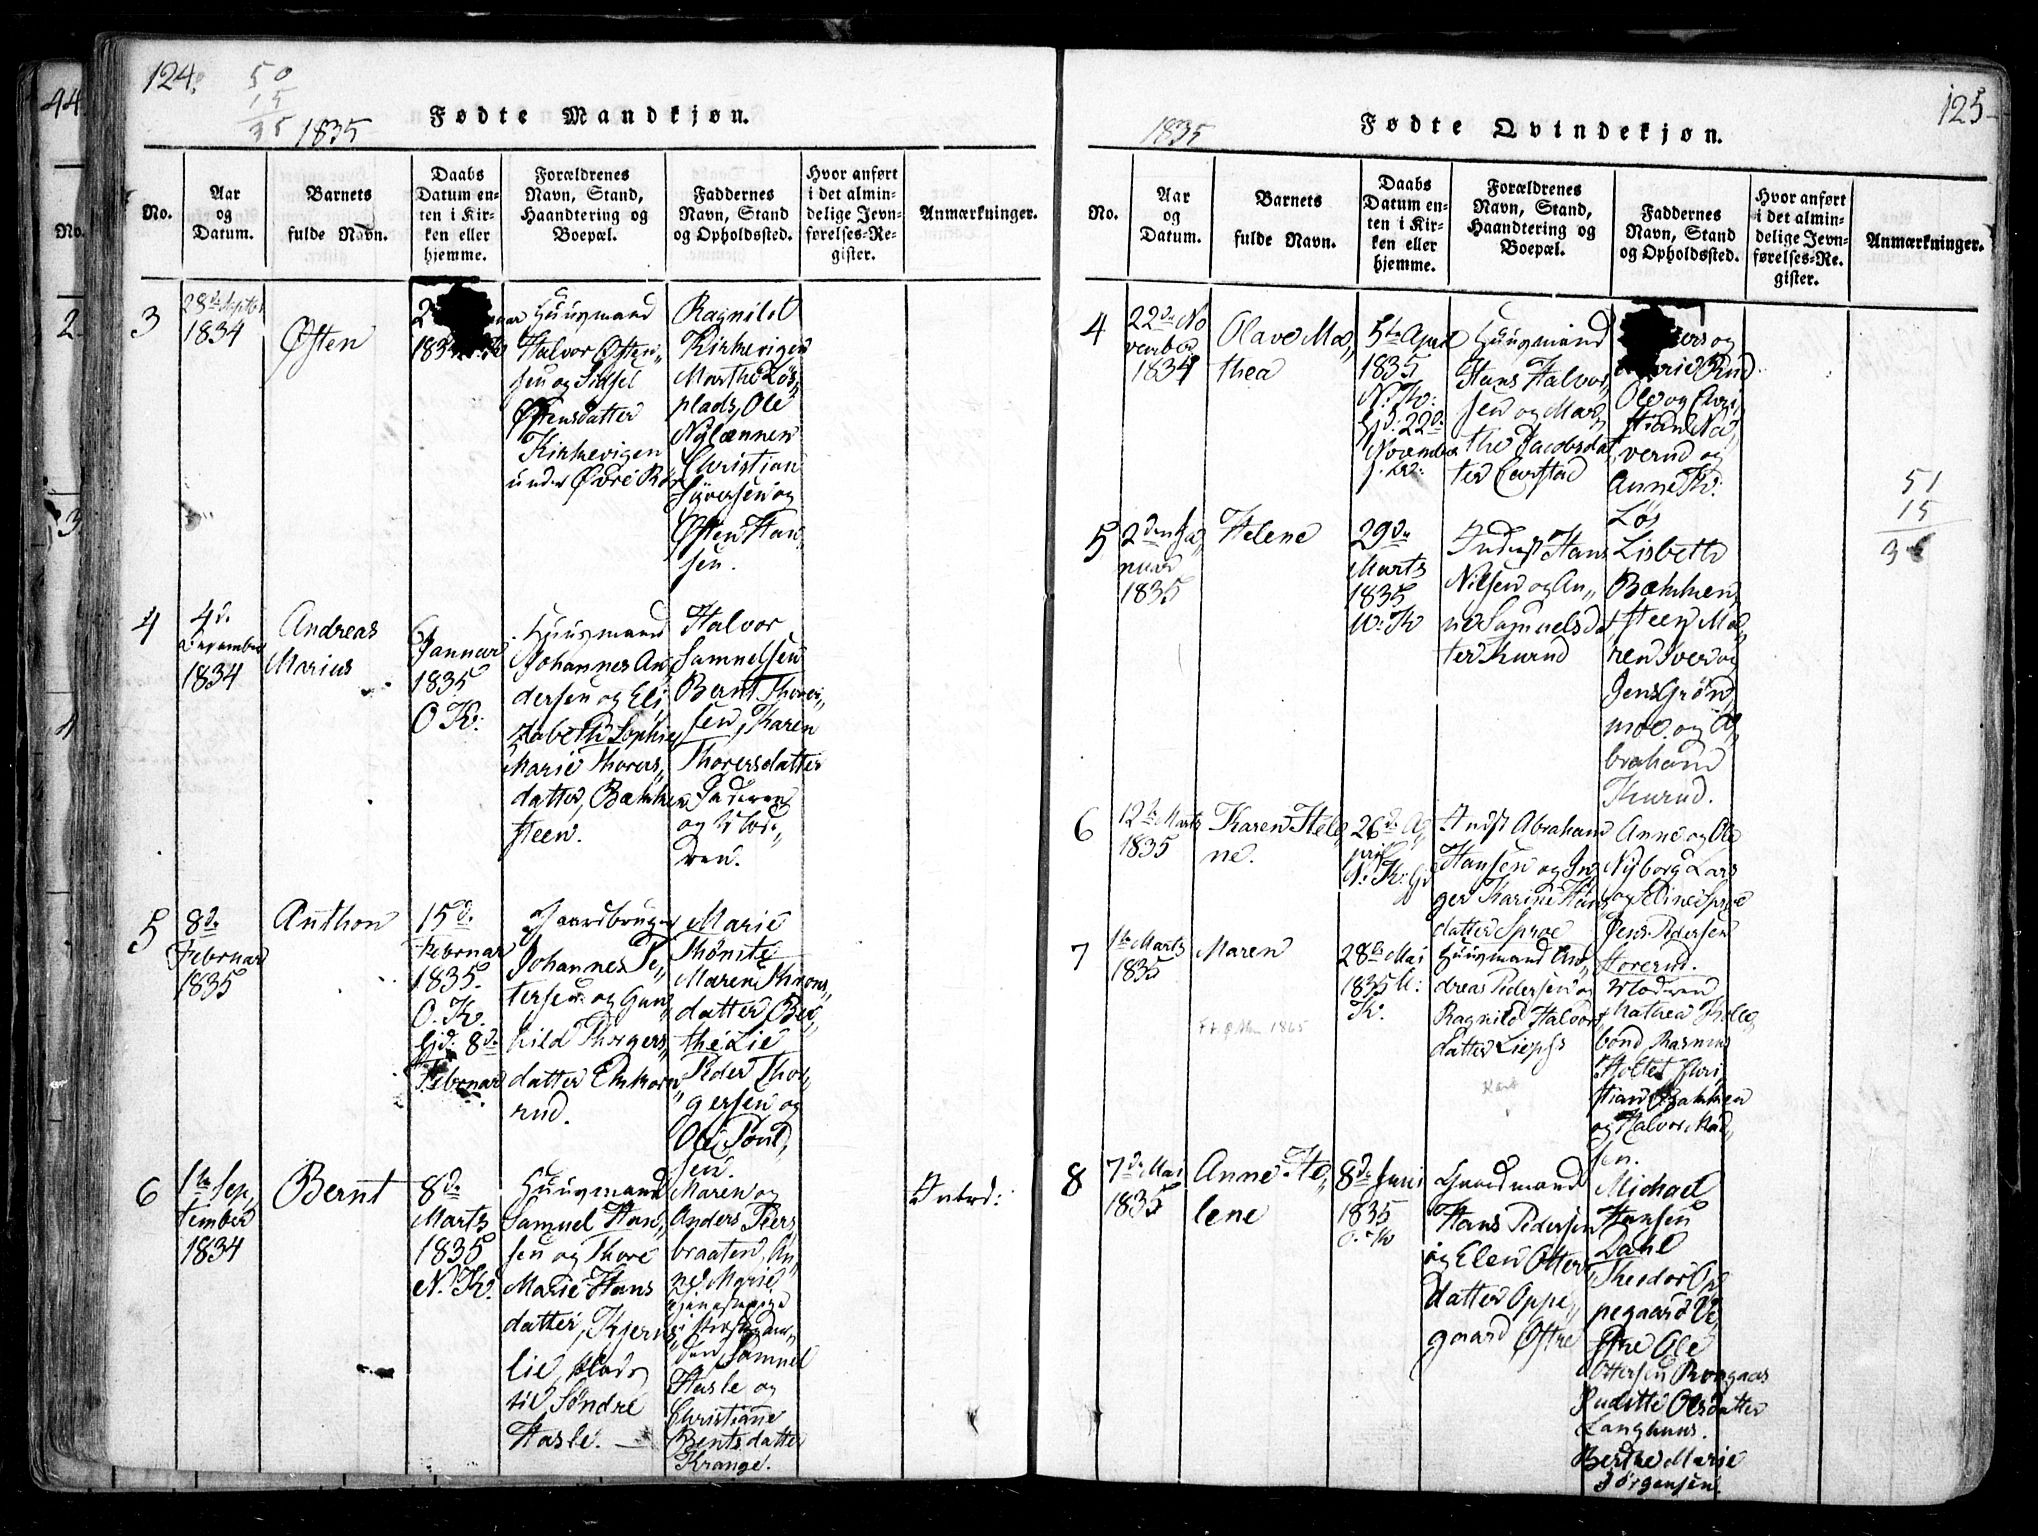 124.
50
15
35
1835
Fødte Mandkjøn.
No.
Aar
og
Datum.
Barnets
fulde Navn.
Daabs
Datum en-
ten i Kir-
ken eller
hjemme.
Forældrenes
Navn, Stand,
Haandtering og
Boepæl.
Faddernes
Navn, Stand
og Opholdssted.
Hvor anført
i det almin-
delige Jevn-
førelses-Re-
gister.
Anmærkninger.
3
28de Septbr
1834
Østen
Huusmand
Halvor Østen„
sen og Sidsel
Østensdatter
Kirkevigen
under Øvre
Ragnild
Kirkevigen
Marthe Løs„
plads, Ole
Christian
Syversen og
Østen Han„
sen.
4
4d.
December
1834
Andreas
Marius
6
Januar
1835
O. K:
Huusmand
Johannes An„
dersen og Eli
zabeth Sophie
Marie Thorers„
datter, Bækken
steen.
Halvor
Samuelsen
Bernt Thorer„
sen, Karen
Thorersdatter
Faderen
og Mode„
ren.
5
8d.
Februar
1835
Anthon
15d.
Februar
1835.
O. K.
Hjd: 8d.
Februar
Gaardbruger
Johannes Pe„
tersen og Gun„
hild Thorgers„
datter Ekorn„
rud.
Marie
Maren Throns„
datter Ber„
the Lie
Peder Thor„
gersen og
Ole Poul„
sen.
6
1te Sep„
tember
1834
Bernt
8d.
Marts
1835
N. K.
Huusmand
Samuel Han„
sen og Thore
Marie Hans
datter, Kjerns„
lie, plads
til Søndre
Hasle.
Maren og
Anders Peers
braaten, An„
ne Marie
tjenestepige
Samuel
Hasle og
Christiane
Bentsdatter
Krange.
Introd:
125
1835
Fødte Qvindekjøn.
No.
Aar
og
Datum.
Barnets
fulde Navn.
Daabs
Datum en-
ten i Kir-
ken eller
hjemme.
Forældrenes
Navn, Stand,
Haandtering og
Boepæl.
Faddernes
Navn, Stand
og Opholdssted.
Hvor anført
i det almin-
delige Jevn-
førelses-Re-
gister.
Anmærkninger.
4
22de No
vember
1834
Olave Ma„
thea
5te April
1835
N. K:
Hjd. 22d.
November
Huusmand
Hans Halvor„
sen og Mar„
the Jacobsdat„
ter
og
Marie Rud
Ole og Chri„
stian Na„
verud og
Anne K:
Løs
51
15
36
5
2den Ja„
nuar
1835
Helene
29d.
Marts
1835
N: K
Inderst Hans
Nilsen og An„
ne Samuelsda
ter Kurud
Lisbeth
Bækken„
steen Ma„
ren Iver og
Jens Grøn„
moe og A„
braham
Kurud.
6
12te Marts
1835
Karen Hele„
ne.
26d. A„
pril
N. K.
Inderst Abraham
Hansen og In„
ger Karine Hans
datter Sproe
Anne og Ole
Nyborg Lars
og Eline Sproe
Jens Pedersen
7
1te Marts
1835
Maren
28de Mai
1835
K.
Huusmand An„
dreas Pedersen og
Ragnild Halvors
datter
Moderen
Mathea
Rasmus
Holtet Chri„
stian Bakken
og Halvor Mad„
sen.
8
7d. Mai
1835
Anne He„
lene
8d. Juni
1835
O. K
Gaardmand
Hans Pedersen
og Elen Otters
datter Oppe„
gaard Østre
Michael
Hansen
Dahl
Theodor Op
pegaard Ve„
stre Ole
Ottersen
Juditte Olsdatter
Langhuus.
Berthe Marie
Jørgensen.